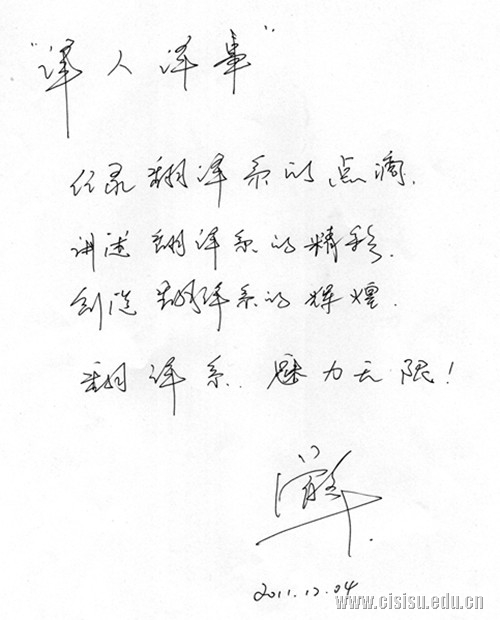 "译人译事"
记录翻译系的点滴.
讲述翻译系的精彩.
创造翻译系的辉煌.
翻译系.魅力无限!
2011.12.04
www.cisisu.edu.cn